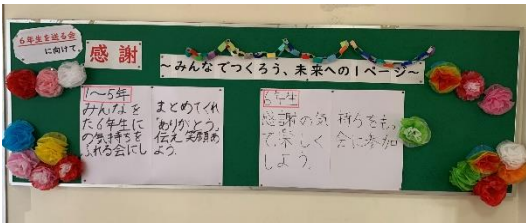 6年生を送る会
に向けて
感謝
～みんなでつくろう、未来への1ページ～
1～5年
みんなをまとめてくれ
た6年生に“ありがとう”
の気持ちを伝え笑顔あ
ふれる会にしよう。
6年生
感謝の気持ちをもっ
て楽しく会に参加
しよう。